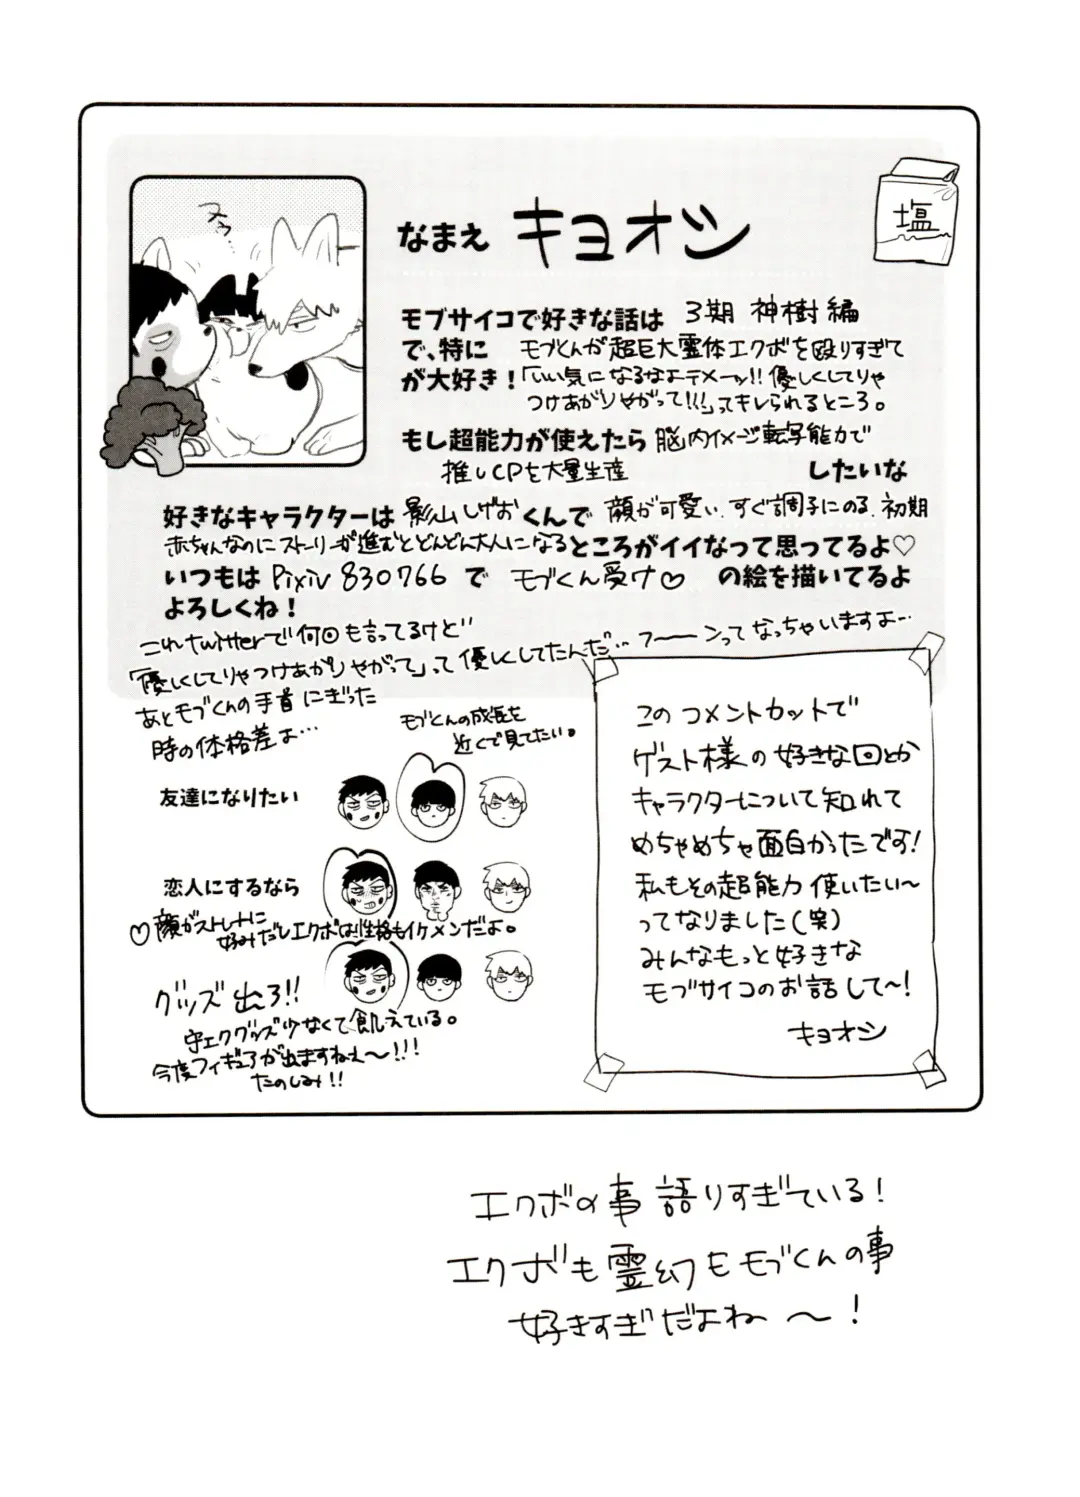 なまえ キヨオシ
塩
モブサイコで好きな話は 3期 神樹編
で、特に モブくんが超巨大霊体エクボを殴りすぎて
が大好き！「いい気になるなよテメーッ!!優しくしてりゃ
つけあがりやがって!!!」ってキレられるところ。
もし超能力が使えたら 脳内イメージ転写能力で
推しCPを大量生産 したいな
好きなキャラクターは 影山しげお くんで 顔が可愛い、すぐ調子にのる、初期
赤ちゃんなのにストーリーが進むとどんどん大人になる ところがイイなって思ってるよ♡
いつもは Pixiv 830766 で モブくん受け♡ の絵を描いてるよ
よろしくね！
これtwitterで何回も言ってるけど
「優しくしてりゃつけあがりやがって」って優しくしてたんだ…フーーンってなっちゃいますよ…
あとモブくんの手首にぎった
時の体格差よ…
モブくんの成長を
近くで見てたい。
友達になりたい
恋人にするなら
♡顔がストレートに
好みだしエクボは性格もイケメンだよ。
グッズ出ろ!!
守エクグッズ少なくて飢えている。
今度フィギュアが出ますねぇ〜!!!
たのしみ!!
このコメントカットで
ゲスト様の好きな回とか
キャラクターについて知れて
めちゃめちゃ面白かったです!
私もその超能力使いたい〜
ってなりました(笑)
みんなもっと好きな
モブサイコのお話して〜!
キヨオシ
エクボの事語りすぎている!
エクボも霊幻もモブくんの事
好きすぎだよね〜!